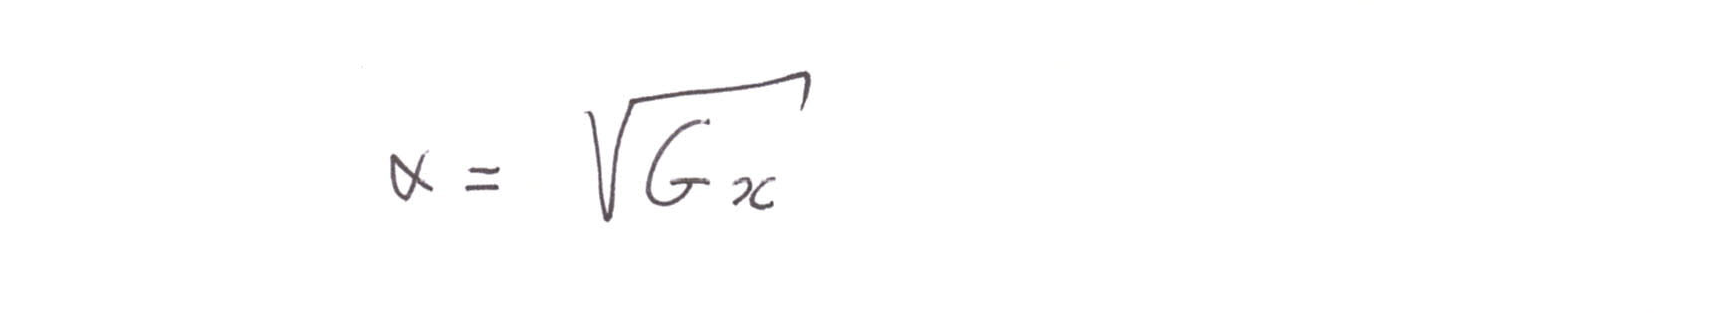 α = √Gx